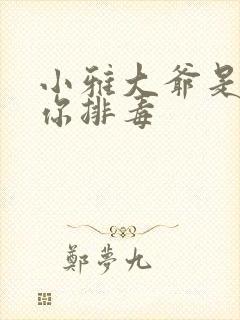 小雅大爷是
你排毒
鄭夢九